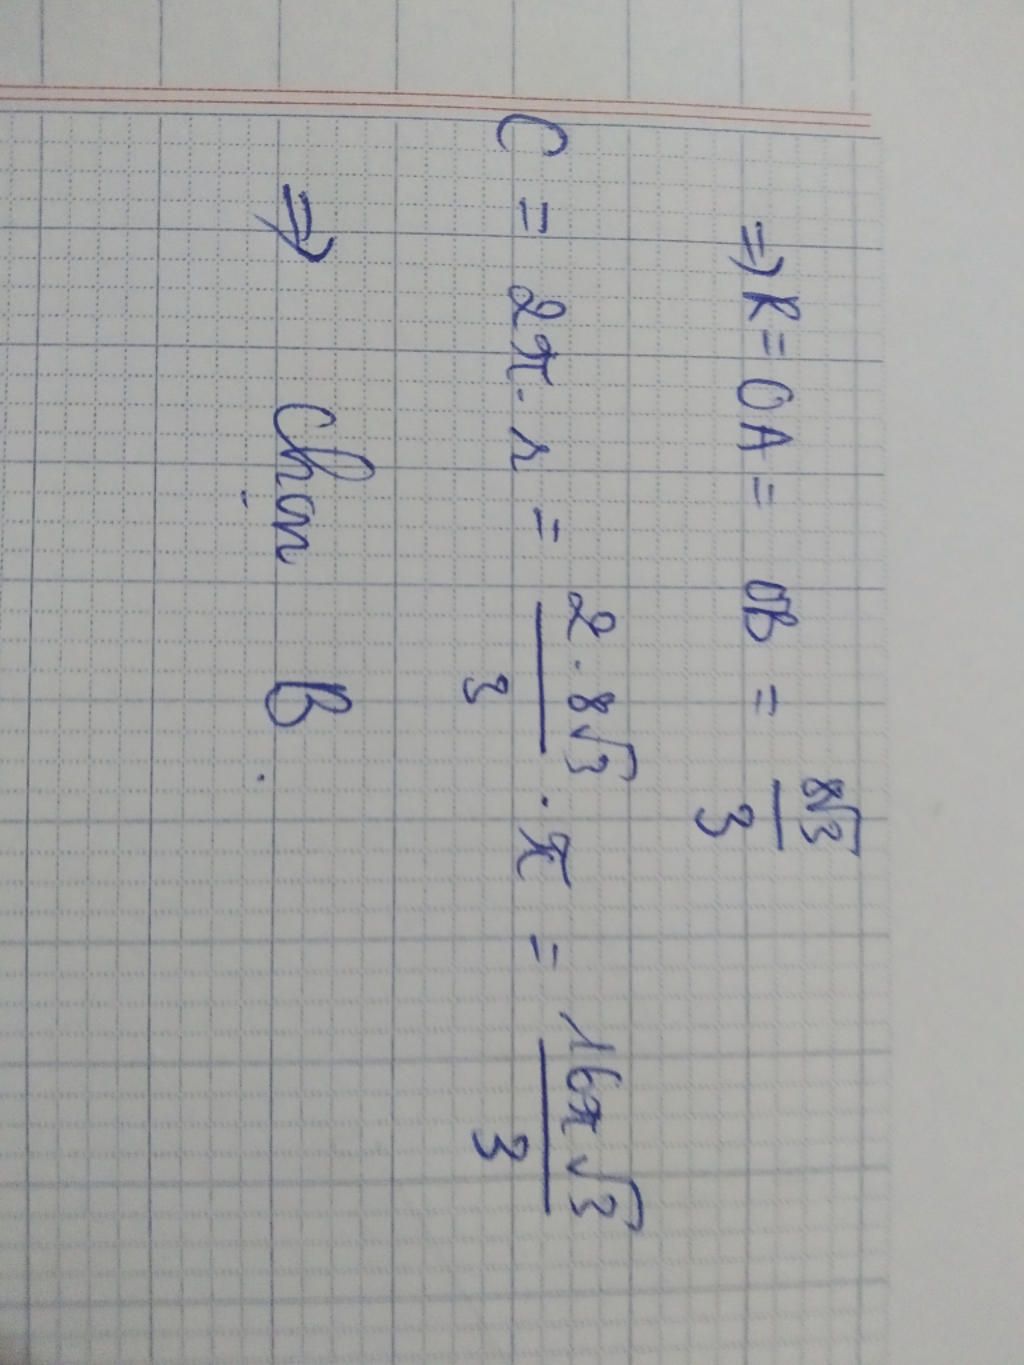 ⇒ R = OA = OB = 8√3/3
C = 2π . r = 2 . 8√3/3 . π = 16π√3/3
⇒ Chọn B.